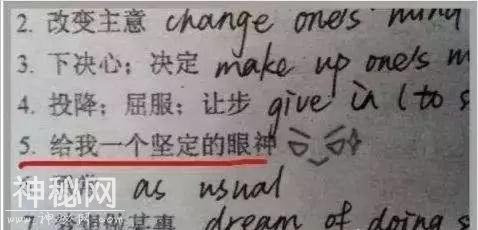 2. 改变主意 change one's mind
3. 下决心；决定 make up one's m
4. 投降；屈服；让步 give in (to s
5. 给我一个坚定的眼神
as usual
dream of doing s
神秘网